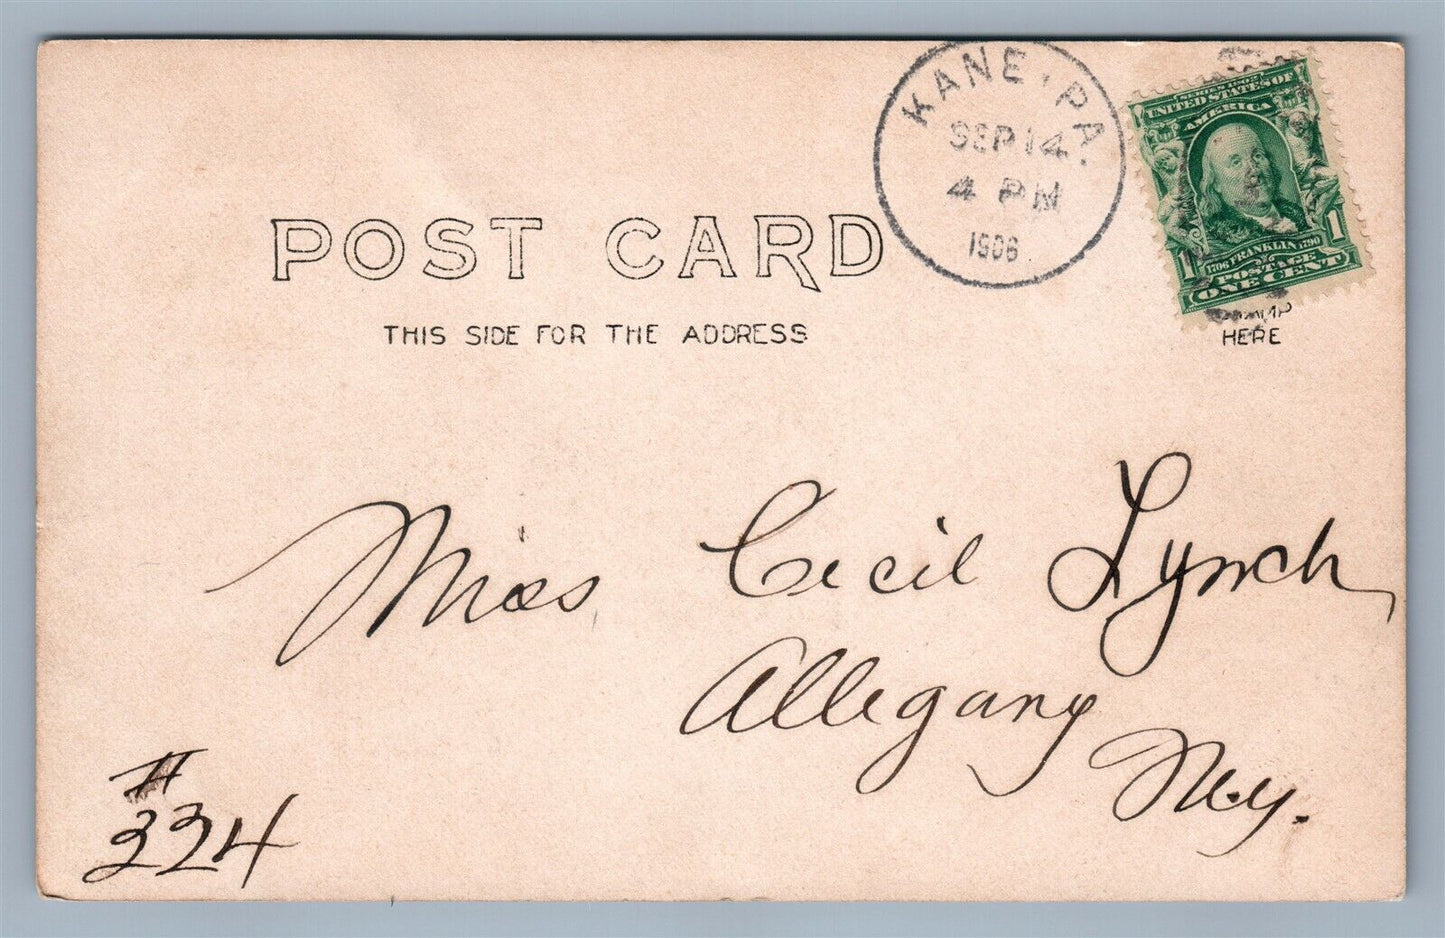 KANE, PA.
SEP 14
4 PM
1906
SERIES 1902
UNITED STATES OF
AMERICA
1706 FRANKLIN 1790
1 POSTAGE 1
ONE CENT
POST CARD
THIS SIDE FOR THE ADDRESS
HERE
Miss Cecil Lynch,
Allegany
N.y.
#
324